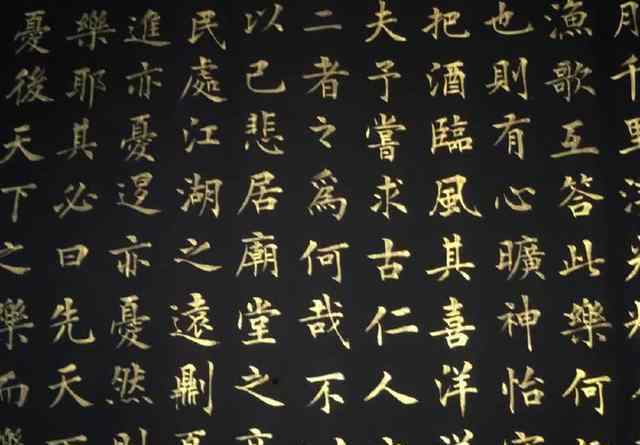 月千里
漁歌互答此樂何
也則有心曠神怡
把酒臨風其喜洋
夫予嘗求古仁人
二者之爲何哉不
以己悲居廟堂之
民處江湖之遠則
進亦憂退亦憂然則
樂耶其必曰先天下
憂後天下之樂而